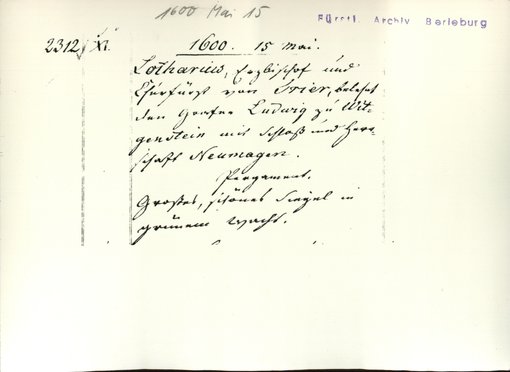 1600 Mai 15
Fürstl. Archiv Berleburg
2312 XI. 1600. 15 Mai.
Lotharius, Erzbischof und
Churfürst von Trier, belehnt
den Grafen Ludwig zu Wit-
genstein mit Schloß und Herr-
schaft Neumagen.
Pergament.
Großes, schönes Siegel in
grünem Wachs.